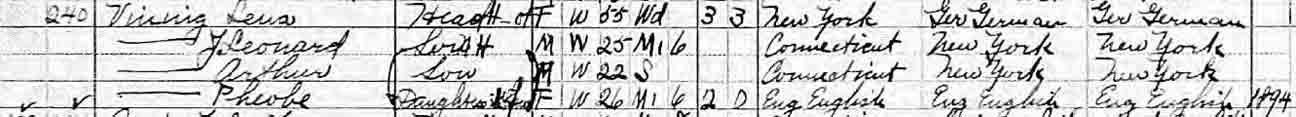 240 Vining Lena Head H F W 55 Wd 3 3 New York Ger German Ger German 1
—— J Leonard Son H M W 25 M1 6 Connecticut New York New York
—— Arthur Son M W 22 S Connecticut New York New York
—— Pheobe Daughter F W 26 M1 6 2 0 Eng English Eng English Eng English 1894